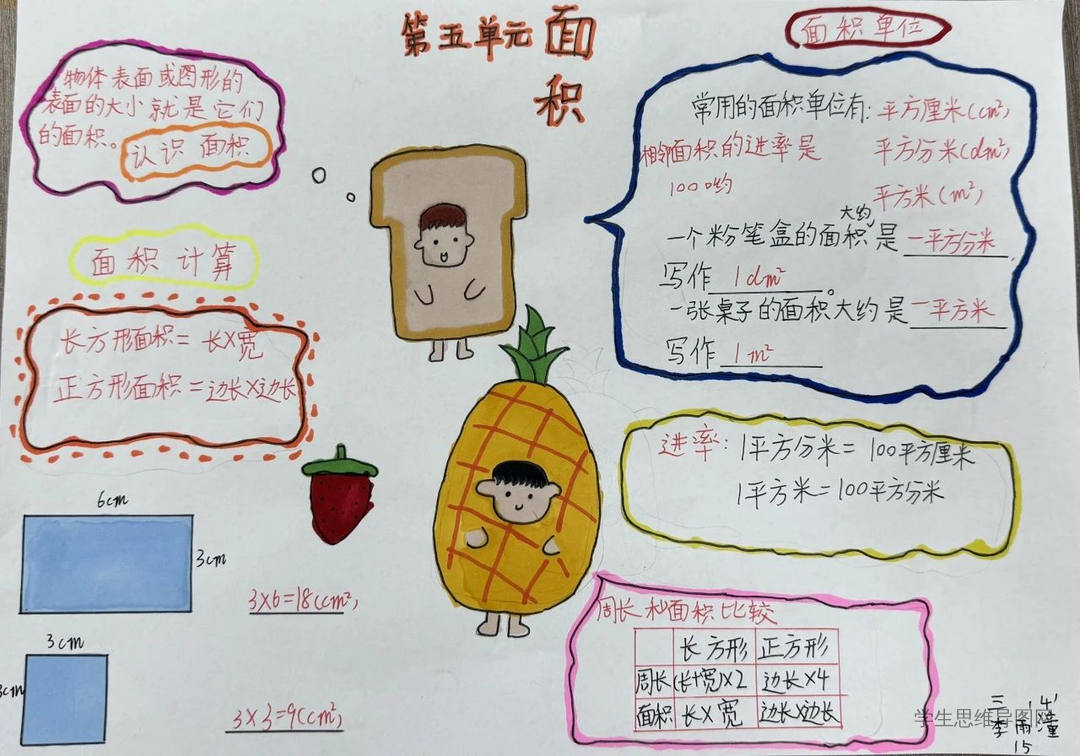 第五单元 面积
物体表面或图形的
表面的大小就是它们
的面积。
认识 面积
面积单位
常用的面积单位有:平方厘米(cm²)
相邻面积的进率是 平方分米(dm²)
100哟 平方米(m²)
一个粉笔盒的面积大约是一平方分米
写作 1dm²。
一张桌子的面积大约是一平方米
写作 1m²
面积计算
长方形面积=长×宽
正方形面积=边长×边长
进率:1平方分米=100平方厘米
1平方米=100平方分米
6cm
3cm
3×6=18(cm²)
3cm
3cm
3×3=9(cm²)
周长和面积比较
长方形 正方形
周长 (长+宽)×2 边长×4
面积 长×宽 边长×边长
学生思维导图网
三 14'
李雨潼
15